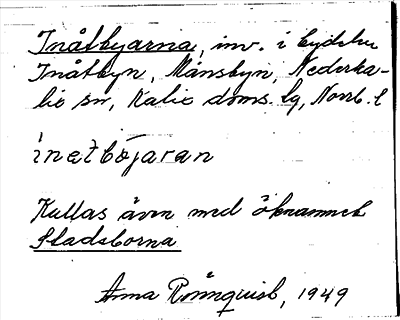 Inåtbyarna, inv. i bydelen
Inåtbyn, Månsbyn, Nederka-
lix sn, Kalix doms. lg, Norrb. l
inatböjaran
Kallas även med öknamnet
Stadsborna
Anna Rönnquist, 1949